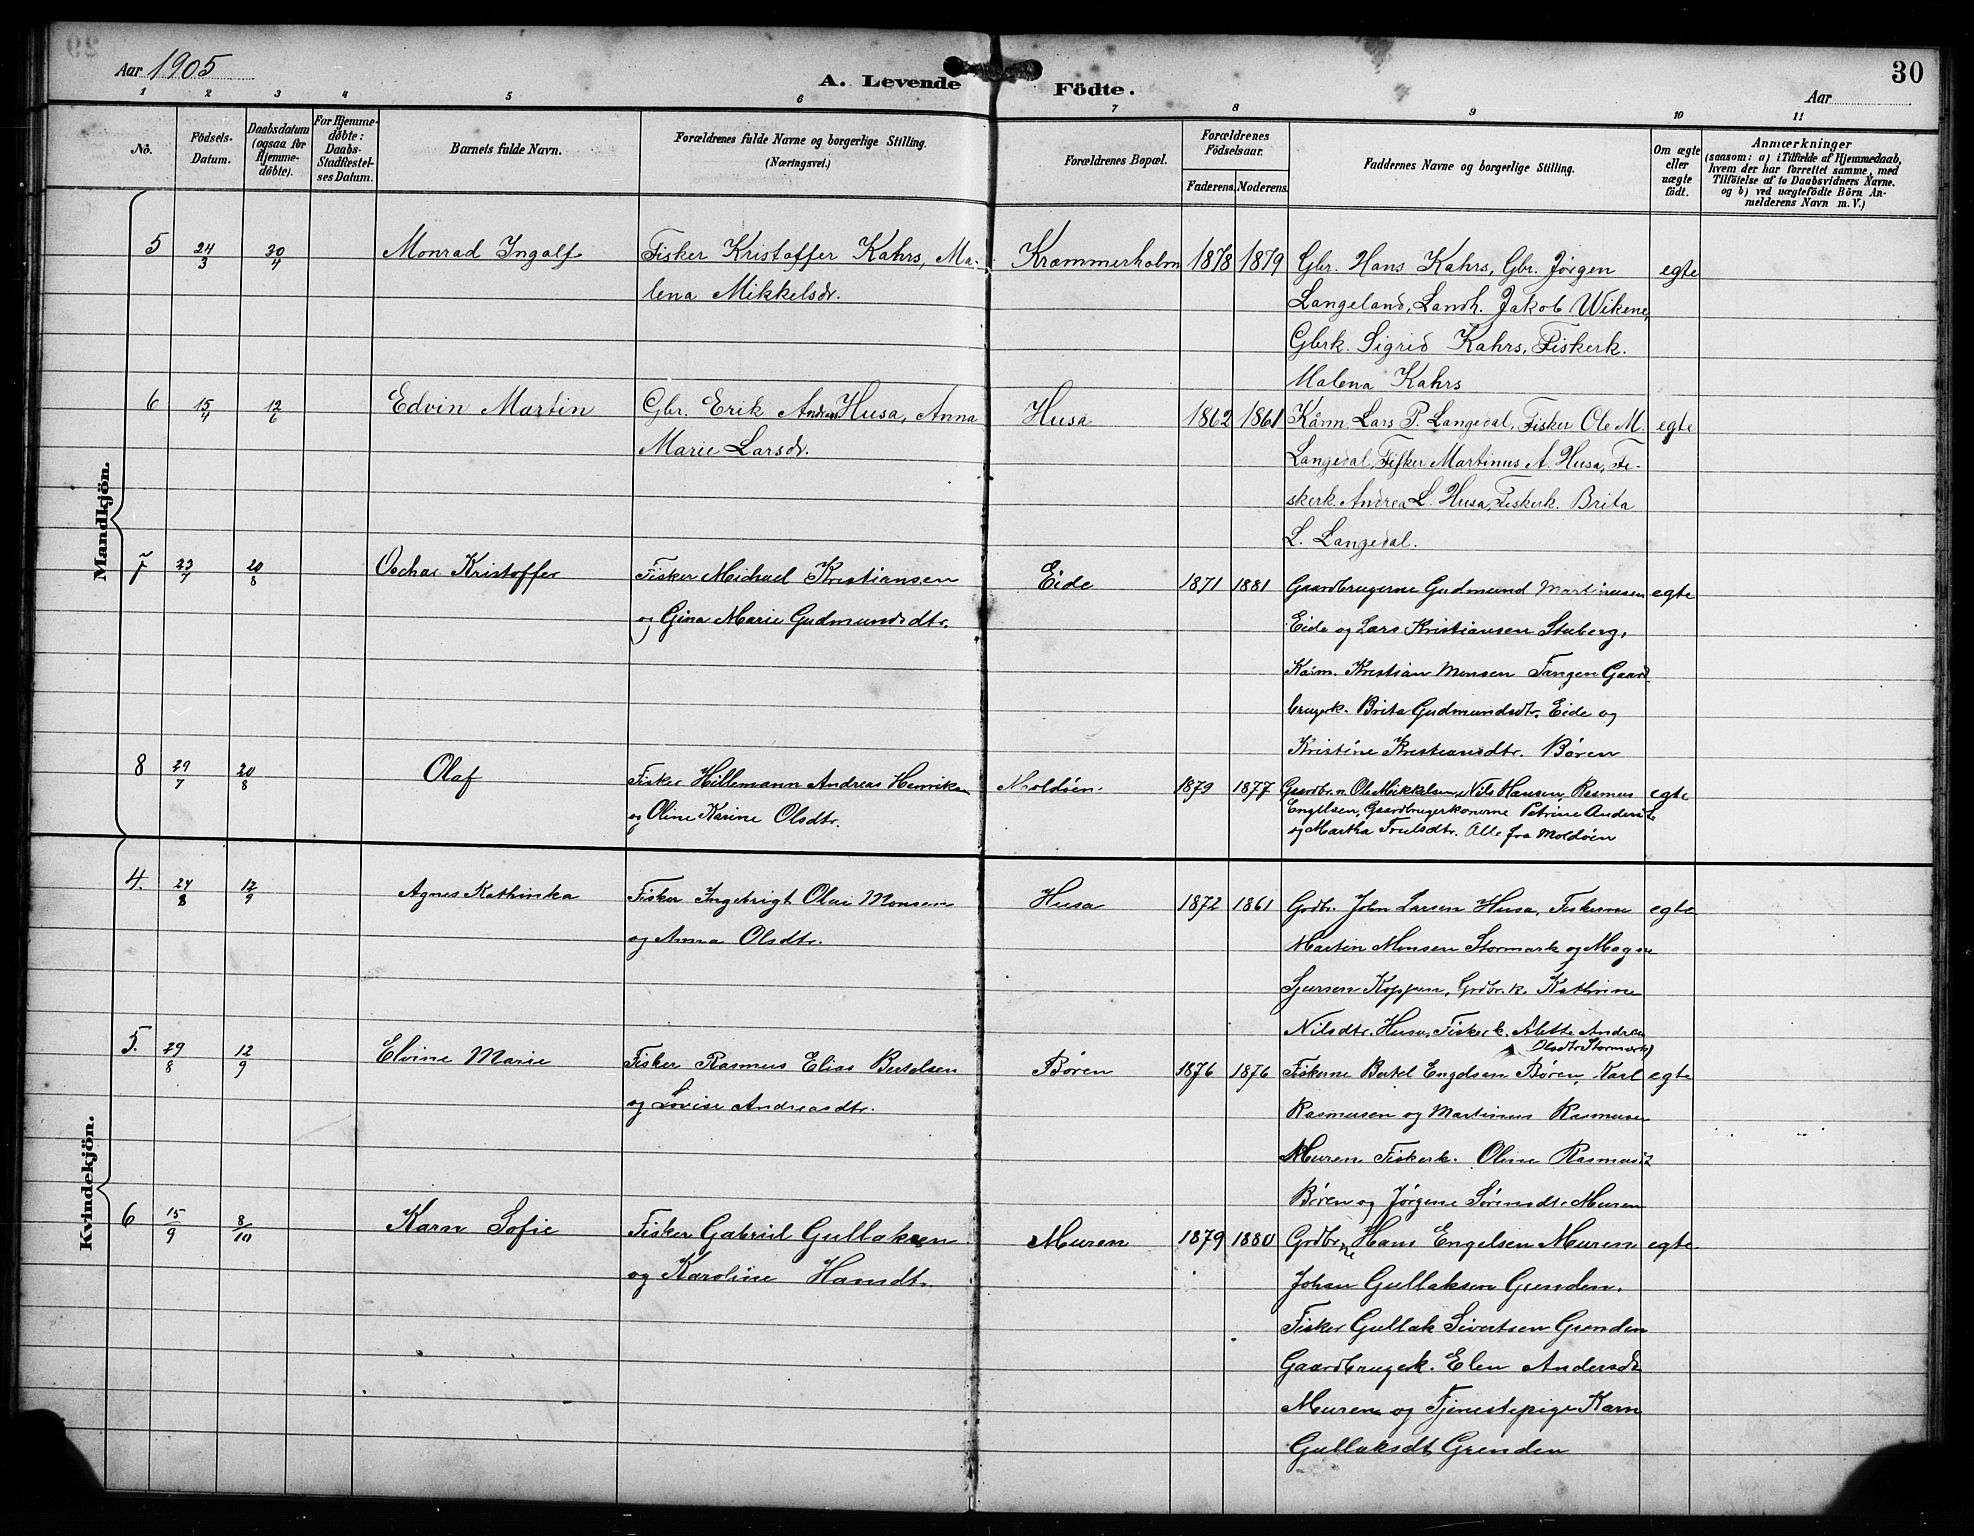 Aar 1905
A. Levende Födte.
30
Aar
1 2 3 4 5 6 7 8 9 10 11
No.
Födsels-
Datum.
Daabsdatum
(ogsaa for
Hjemme-
döbte).
For Hjemme-
döbte:
Daabs-
Stadfæstel-
ses Datum.
Barnets fulde Navn.
Forældrenes fulde Navne og borgerlige Stilling.
(Næringsvei.)
Forældrenes Bopæl.
Forældrenes
Födselsaar.
Faderens. Moderens.
Faddernes Navne og borgerlige Stilling.
Om ægte
eller
uægte
födt.
Anmærkninger
(saasom: a) i Tilfælde af Hjemmedaab,
hvem der har forrettet samme, med
Tilföielse af to Daabsvidners Navne,
og b) ved uægtefödte Börn An-
melderens Navn m. V.)
Mandkjön.
5 24/3 30/4 Monrad Ingalf Fisker Kristoffer Kahrs, Ma-
lena Mikkelsdr.
Krammerholm 1878 1879 Gbr. Hans Kahrs, Gbr. Jørgen egte
Langeland, Landh. Jakob Wikene,
Gbrk. Sigrid Kahrs, Fiskerk.
Malena Kahrs
6 15/4 12/6 Edvin Martin Gbr. Erik Andreas Husa, Anna
Marie Larsdr.
Husa 1862 1861 Kårm. Lars P. Langedal, Fisker Ole M. egte
Langedal, Fisker Martinus A. Husa, Fi-
skerk. Andrea L. Husa, Fiskerk. Brita
L. Langedal.
7 23/7 20/8 Oschar Kristoffer Fisker Michael Kristiansen
og Gina Marie Gudmundsdtr.
Eide 1871 1881 Gaardbrugerne Gudmund Martinusen egte
Eide og Lars Kristiansen Staberg,
Kårm. Kristian Monsen Tangen Gaard-
brugerk. Brita Gudmundsdtr. Eide og
Kristine Kristiansdtr. Børen
8 29/7 20/8 Olaf Fisker Hillemann Andreas Henriksen
og Oline Karine Olsdtr.
Moldöen 1879 1877 Gaardbr.n Ole Mikkelsen, Nils Hansen, Rasmus egte
Engelsen, Gaardbrugerkonerne Petrine Andersdt
og Martha Truelsdtr. Alle fra Moldöen
Kvindekjön.
4. 24/8 12/9 Agnes Kathinka Fisker Ingebrigt Olai Monsen
og Anna Olsdtr.
Husa 1872 1861 Grdbr. John Larsen Husa, Fiskerne egte
Martin Monsen Stormark og Magne
Sjursen Koppen, Grdbr.k. Kathrine
Nilsdtr. Husa, Fiskerk. Alette Andrea
Olsdtr Stormark)
5. 29/8 12/9 Elvine Marie Fisker Rasmus Elias Bertelsen
og Lovise Andreasdtr.
Børen 1876 1876 Fiskerne Bertel Engelsen Børen, Karl egte
Rasmusen og Martinus Rasmusen
Muren Fiskerk. Oline Rasmusdt
Børen og Jørgine Sørensdtr Muren
6 15/9 8/10 Karn Sofie Fisker Gabriel Gullaksen
og Karoline Hansdt.
Muren 1879 1880 Grdbr.ne Hans Engelsen Muren egte
Johan Gullaksen Grenden,
Fisker Gullak Sivertsen Grenden
Gaardbrugerk. Elen Andersdt
Muren og Tjenestepige Karn
Gullaksdt Grenden